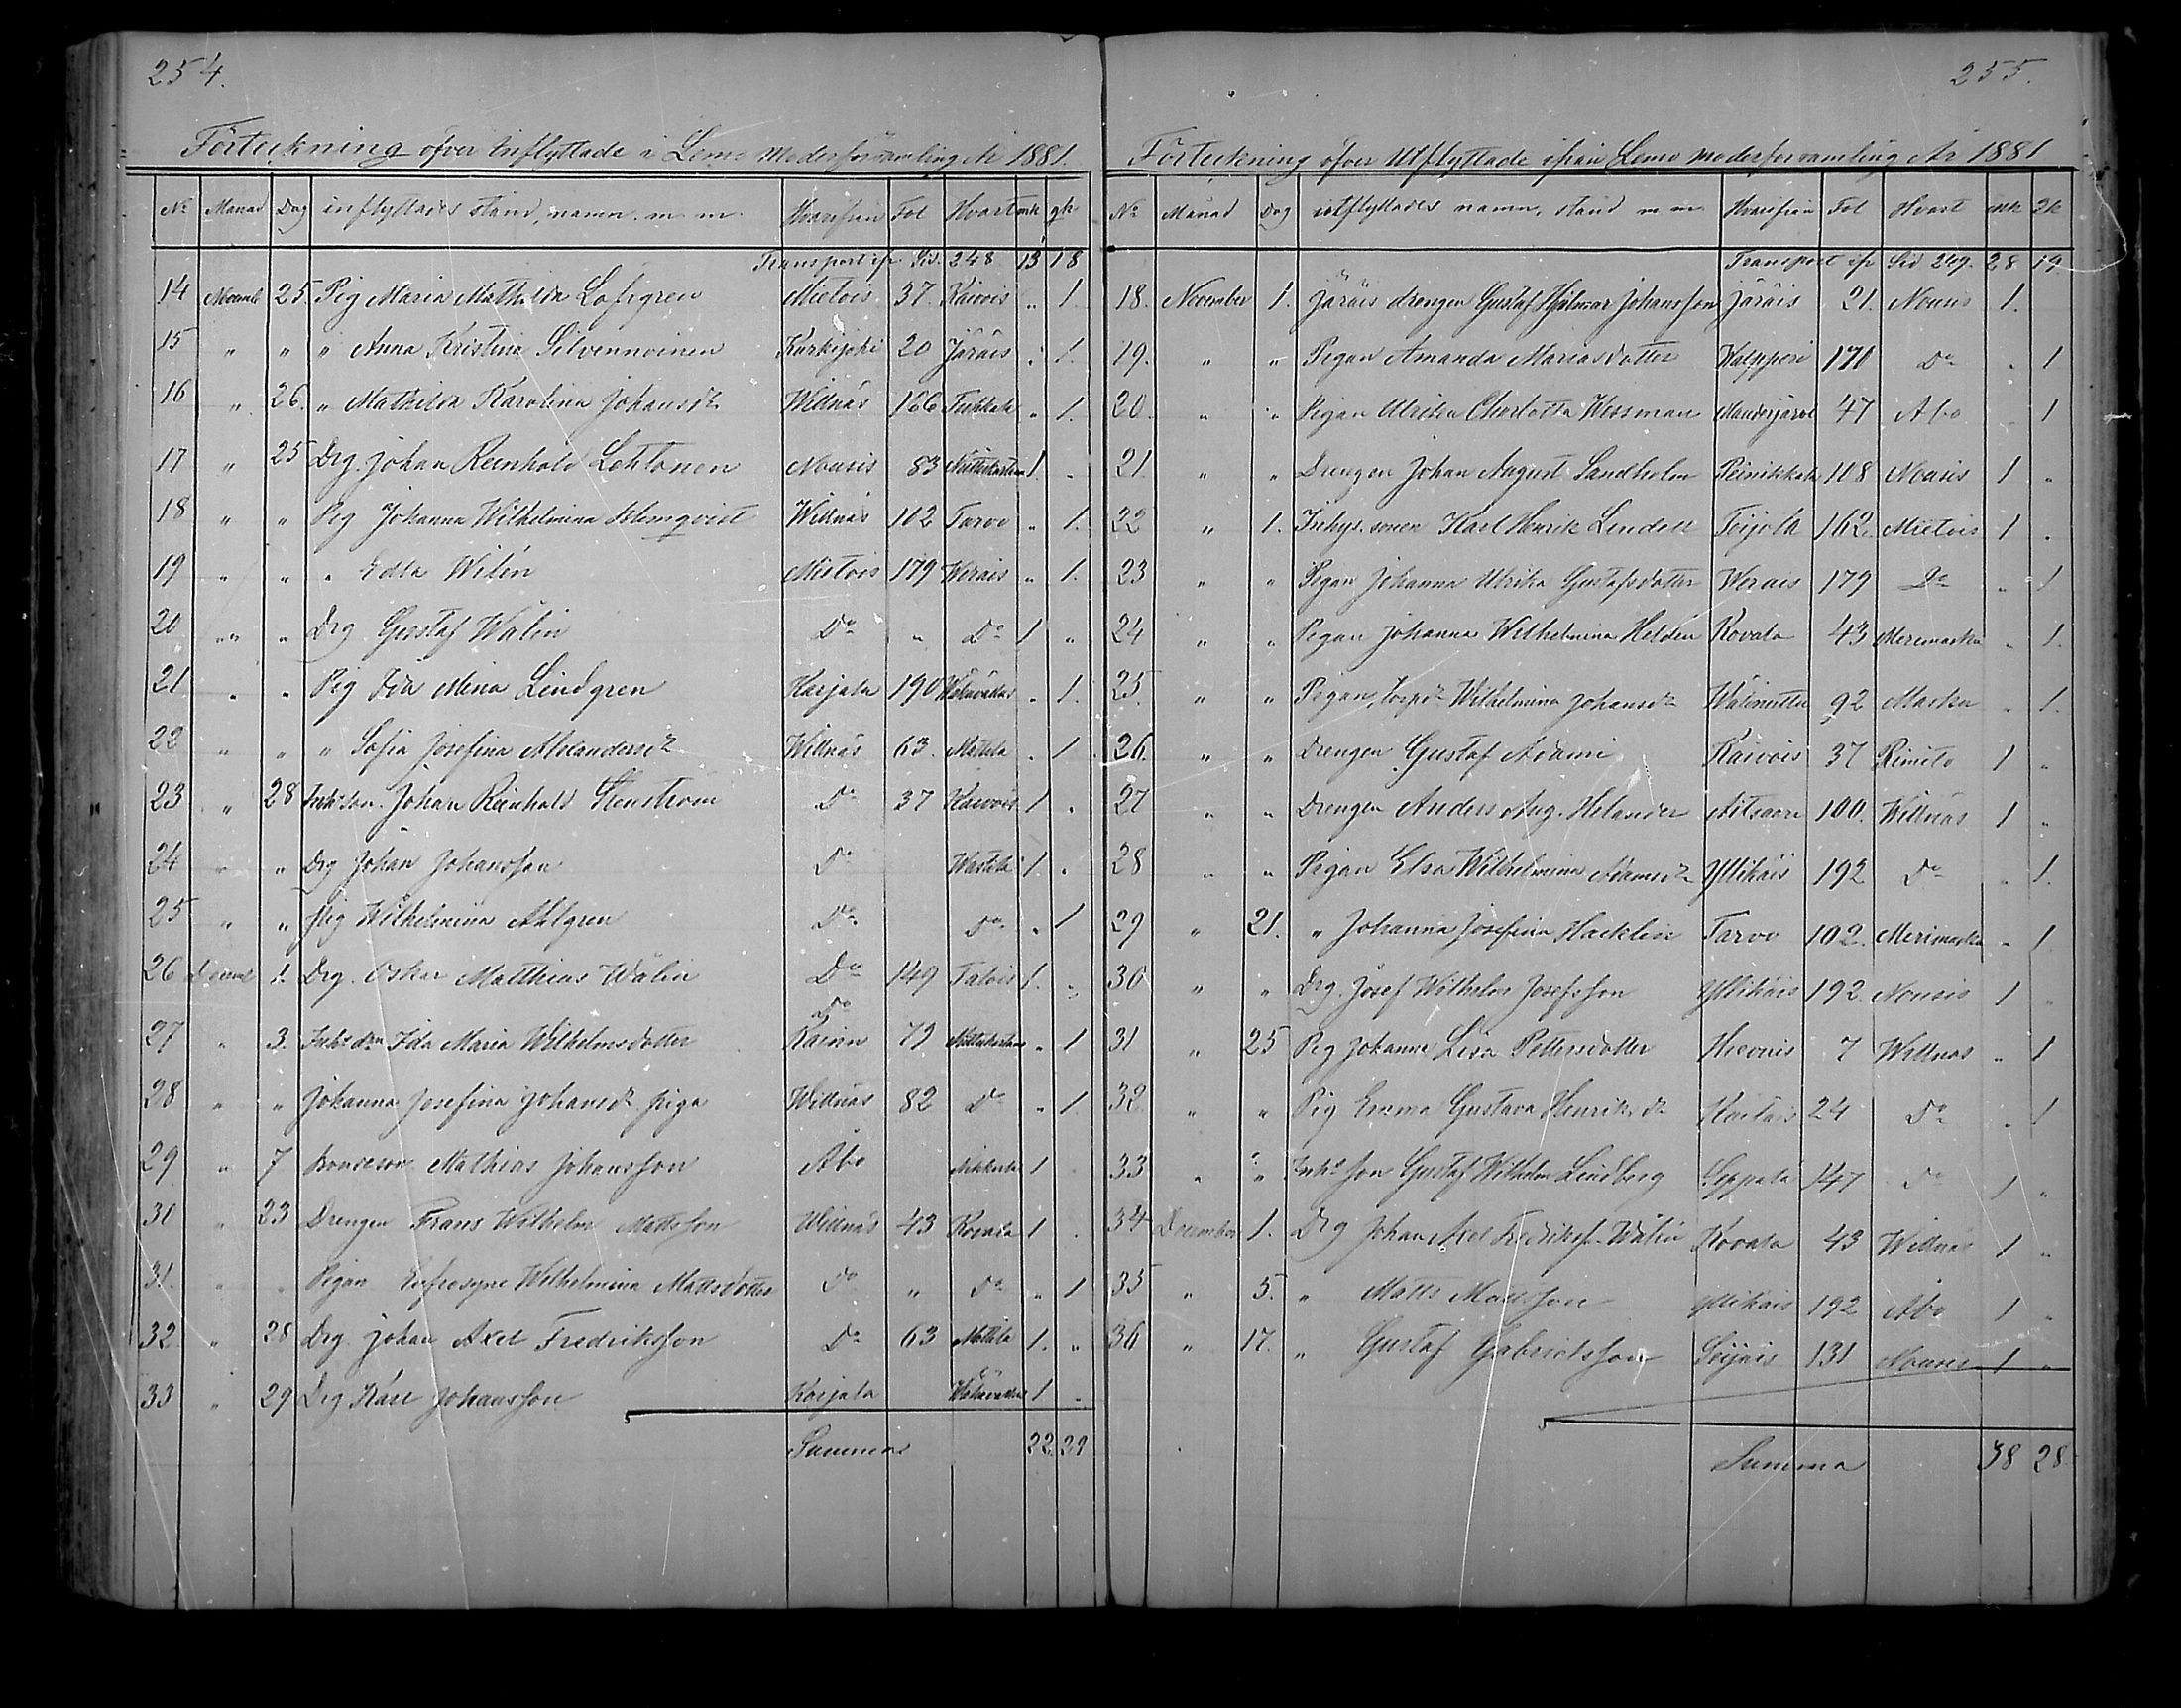 254.
Förteckning öfver Inflyttade i Lemo Moderförsamling År 1881.
No Månad Dag inflyttades stånd, namn. m. m. Hvarifrån Fol Hvart mk qk
Transport ifr Sid. 248 13 18
14 Novemb 25 Pig Maria Mathilda Löfgren Mietois 37. Kaivois " 1.
15 " " " Anna Kristina Silvennoinen Karkijoki 20 Järäis " 1.
16 " 26. " Mathilda Karolina Johansdr Willnäs 166 " 1.
17 " 25 Drg. Johan Reinhold Lehtonen Nousis 83 1. "
18 " " Pig Johanna Wilhelmina Holmqvist Willnäs 102 Tarvo " 1.
19 " " " Edla Wilén Mietois 179 Werais " 1.
20 " " Drg Gustaf Wälin Do " Do 1 "
21 " " Pig Ida Mina Lindgren Karjala 190 " 1.
22 " " " Sofia Josefina Melandersdr Willnäs 63. Mattila " 1
23 " 28 Inhs son. Johan Reinhold Stenström Do 37 Kaivois 1 "
24 " " Drg Johan Johansson Do 1. "
25 " " Pig Wilhelmina Ahlgren Do Do " 1
26 Decemb 1. Drg. Oskar Matthias Wälin Do 149 Talois 1. "
Do
27 " 3. Inhs dr Ida Maria Wilhelmsdotter 79 " 1
28 " " Johanna Josefina Johansdr piga Willnäs 82 Do " 1
29 " 7 bondeson Mathias Johansson Åbo 1
31 " 23 Drengen Frans Wilhelm Mattsson Willnäs 43 Rovala 1 .
31. " " Pigan Eufrosyne Wilhelmina Mattsdotter Do " Do " 1
32 " 28 Drg. Johan Axel Fredriksson Do 63 Mattila 1. "
33 " 29 Drg Karl Johansson Karjala 1 "
Summa 22. 29
255.
Förteckning öfver Utflyttade ifrån Lemo moderförsamling År 1881
No Månad Dag utflyttades namn, stånd m m Hvarifrån Fol Hvart mk qk
Transport ifr Sid 249. 28 19
18. November 1. Järäis drengen Gustaf Hjalmar Johansson Järäis 21. Nousis 1.
19. " " Pigan Amanda Mariasdotter 170 Do " 1
20. " " Pigan Ulrika Charlotta Wessman 47 Åbo 1
21. " " Drengen Johan August Sandholm 108 Nousis 1 "
22 " 1. Inhys. sonen Karl Henrik Lindell Toijola 162. Mietois 1 "
23 " " Pigan Johanna Ulrika Gustafsdotter Werais 179 Do " 1
24 " " Pigan Johanna Wilhelmina Helden Rovala 43 Merimasku " 1.
25. " " Pigan, Wilhelmina Johansdr 92 Masku " 1.
26. " " Drengen Gustaf Adami Kaivois 37 Rimito 1 "
27 " " Drengen Anders Aug. Helander 100. Willnäs 1 "
28 " " Pigan Elsa Wilhelmina Adamsdr Yllikäis 192 Do " 1.
29 " 21. " Johanna Josefina Hacklin Tarvo 102. Merimasku " 1
30 " " Drg. Josef Wilhelm Josefsson Yllikäis 192 Nousis 1 "
31 " 25 Pig Johanna Lisa Pettersdotter 7 Willnäs " 1
32 " " Pig Emma Gustava Henriksdr 24 Do " 1
33 " " Inhs son Gustaf Wilhelm Lindberg Seppälä 147 Do 1 "
34 December 1. Drg Johan Axel Fredriksson Wälin Rovala 43 Willnäs 1 "
35 " 5. " Matts Mattsson Yllikäis 192 Åbo 1 "
36 " 17. " Gustaf Gabrielsson 131 Nousis 1 "
Summa 38 28